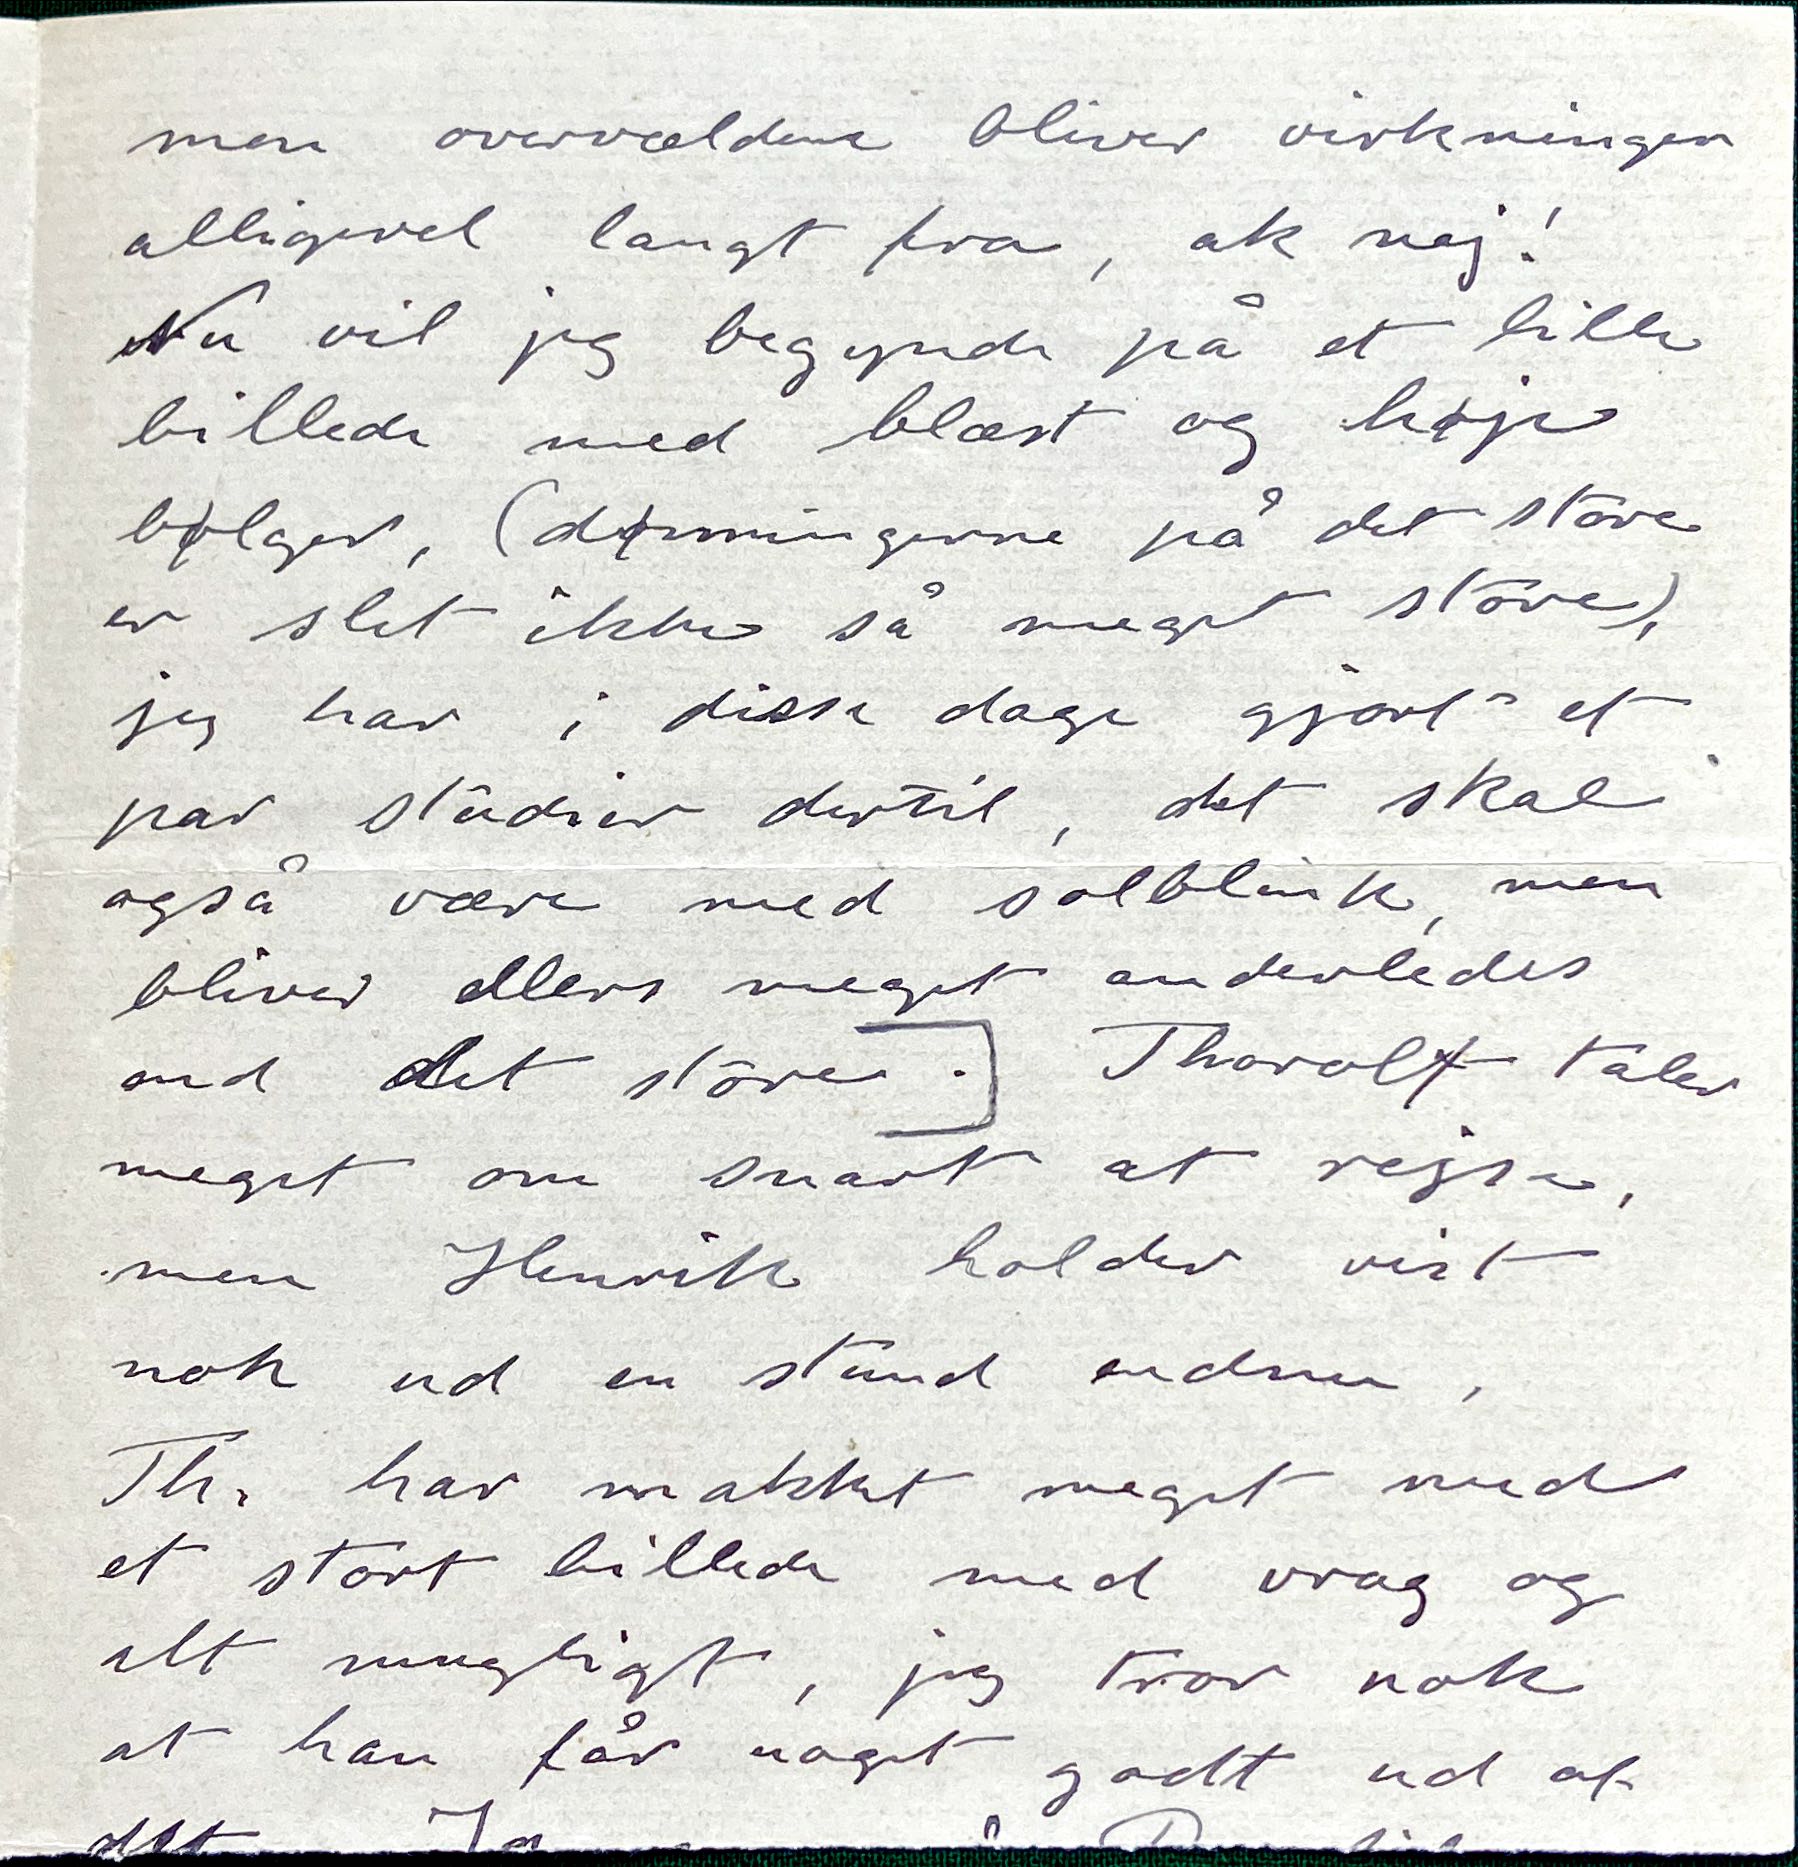 men overvældene bliver virkningen
alligevel langt fra, ak nej!
Nu vil jeg begynde på et lille
billede med blæst og høje
bølger, (dønningerne på det störe
er slet ikke så meget störe),
jeg har i disse dage gjort et
par studier dertil, det skal
også være med solblink, men
bliver ellers meget anderledes
end det störe.] Thorolf taler
meget om snart at rejse,
men Henrik holder vist
nok ud en stund endnu,
Th. har makket meget med
et stort billede med vrag og
alt mugligt, jeg tror nok
at han får noget godt ud af
det